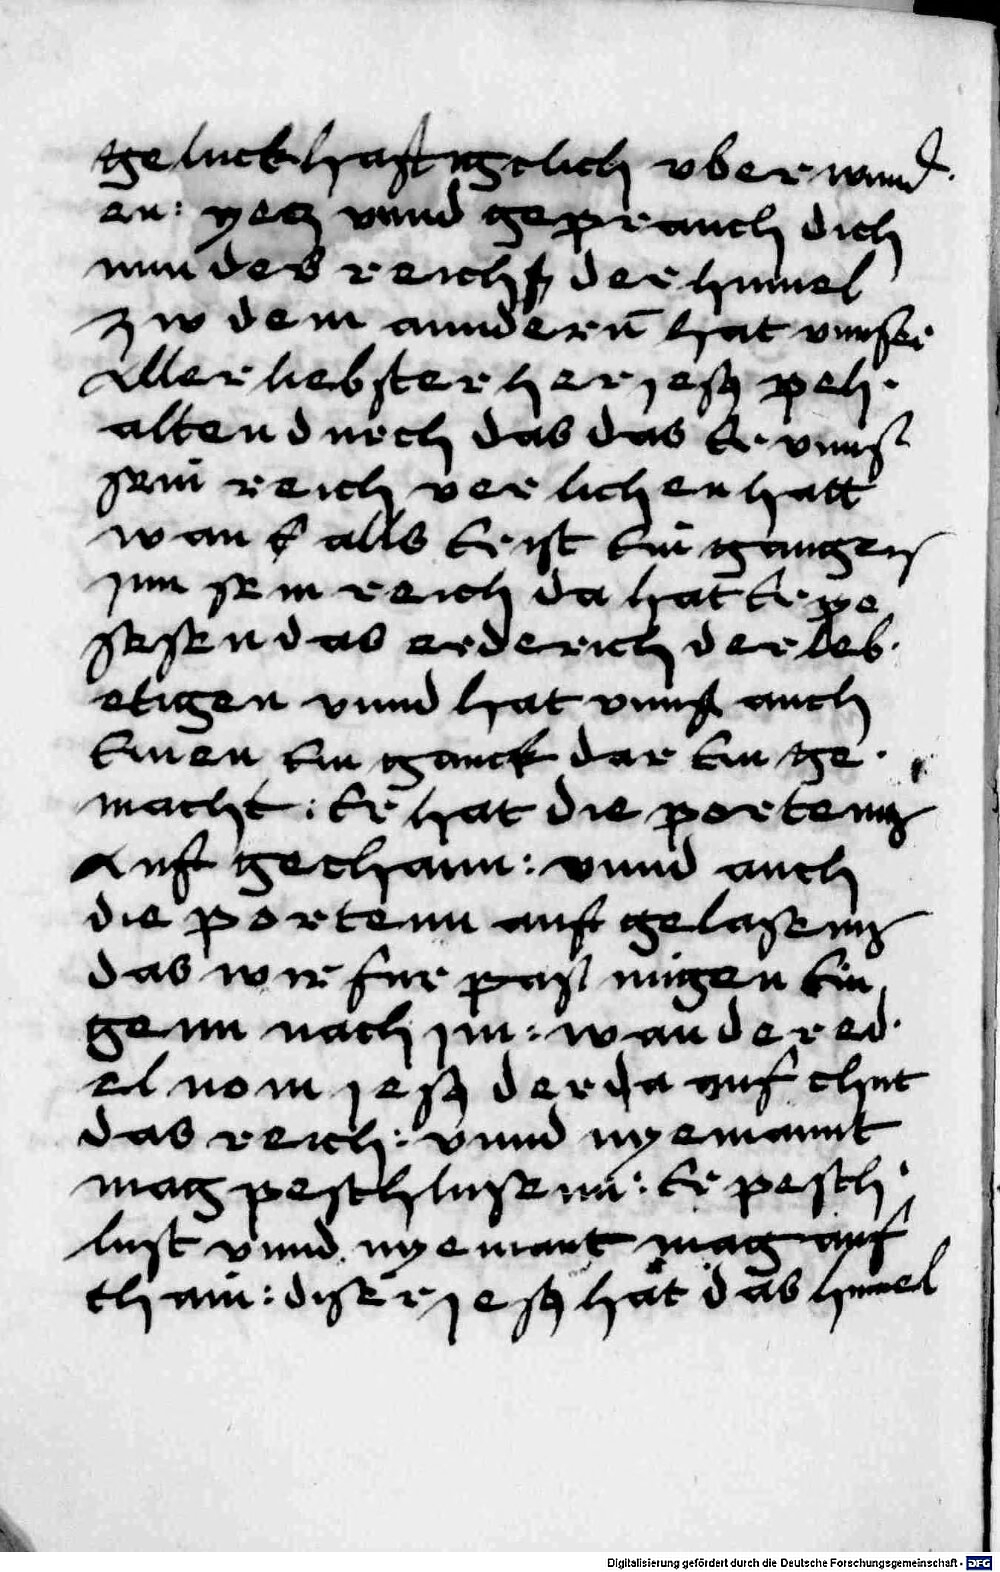 geluckhaftigclich vberwund
en: yecz vnnd geprauch dich
nun des reichs der himel
zw dem anndern̄ hat vnnser
Allerliebster her jesus peh
alten durch das das Er vnns
sein reich verlichen hatt
wan als Er ist Ein gangen
jnn sein reich da hat Er pe
sesen das erderich der leb
etigen vnnd hat vnns auch
Einen Ein ganck dar Ein ge
macht: Er hat die portenn
Auf gethann: vnnd auch
die portenn auf gelasenn
das wir fur pas mügen Ein
genn nach jm: wan der ed
el nom jesus der da auf thut
das reich: vnnd nyemannt
mag peschlusenn: Er pesch
lust vnnd nyemant mag auf
thain: diser jesus hat das himel
Digitalisierung gefördert durch die Deutsche Forschungsgemeinschaft - DFG